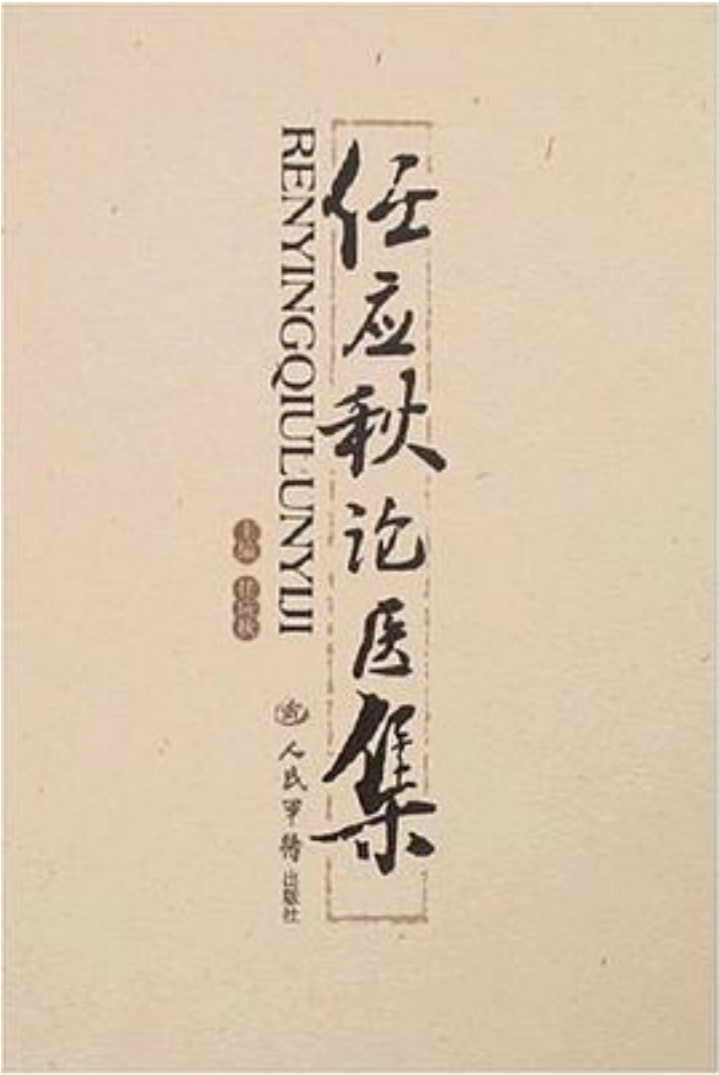 任应秋论医集
RENYINGQIULUNYIJI
主编 任应秋
人民军医出版社